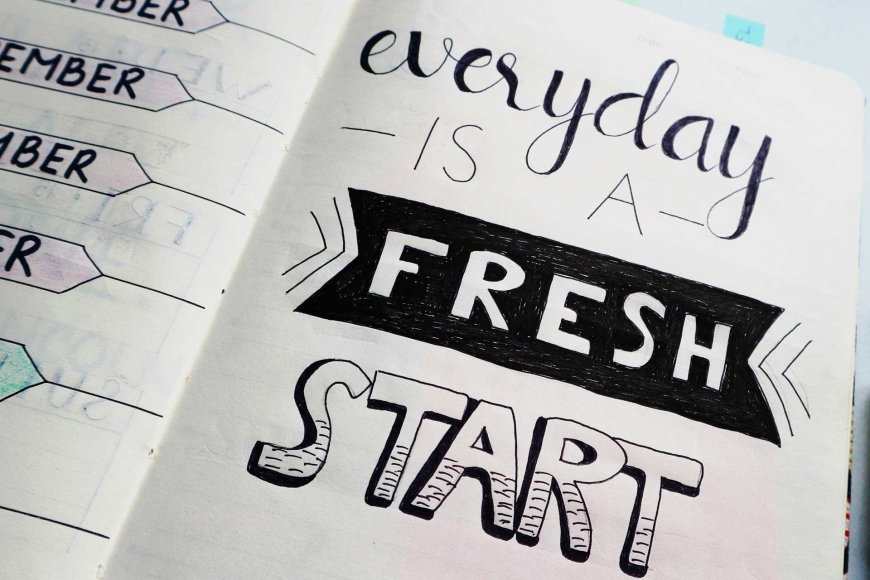 EMBER
EMBER
MBER
ER
everyday
IS
A
FRESH
START